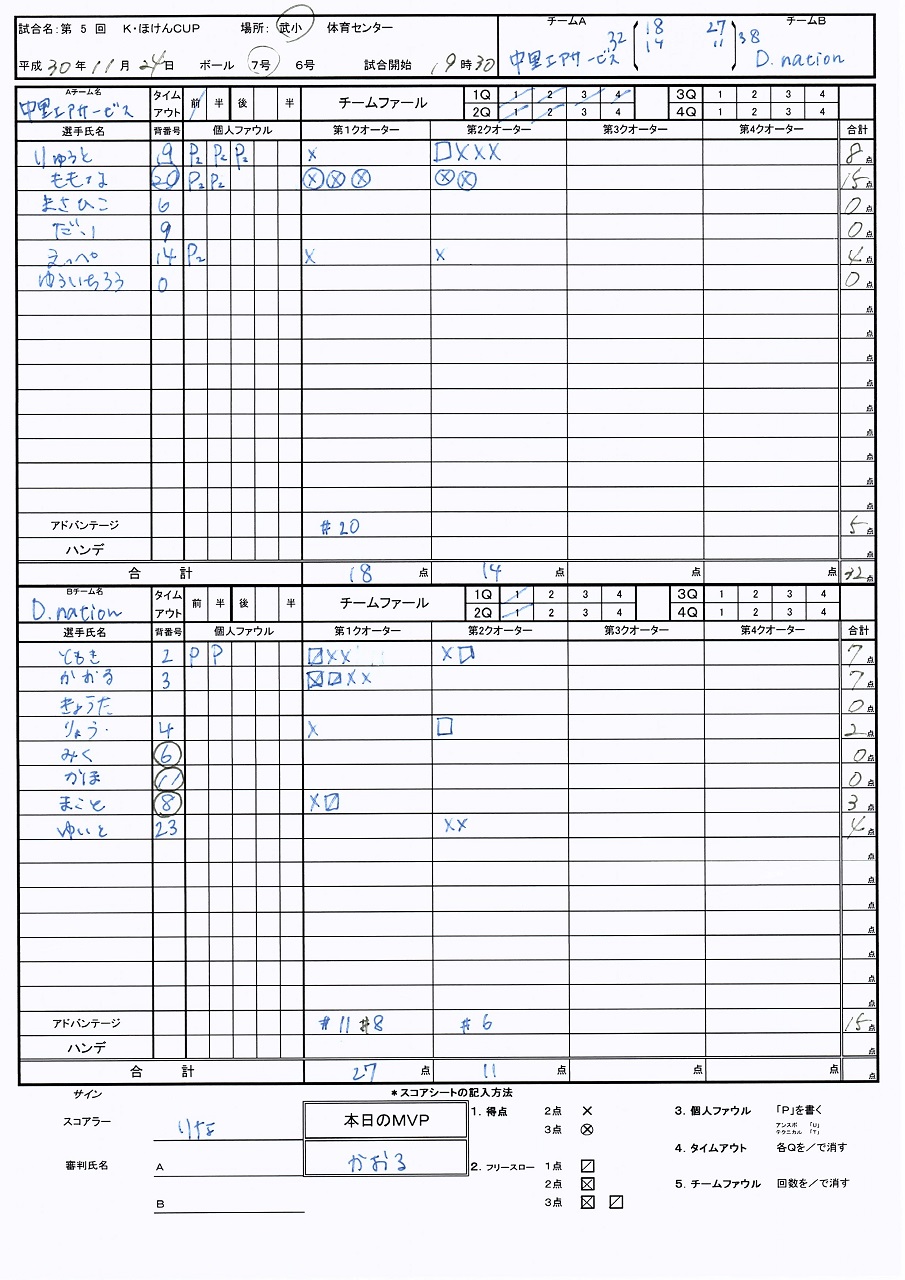 試合名：第 5 回 K・ほけんCUP 場所： 武小 体育センター
平成 30 年 11 月 24 日 ボール 7号 6号 試合開始 19 時 30
チームA チームB
32 18 27 38
14 11
中里エアサービス D.nation
Aチーム名 タイム 前 半 後 半 チームファール 1Q 1 2 3 4 3Q 1 2 3 4
中里エアサービス アウト 2Q 1 2 3 4 4Q 1 2 3 4
選手氏名 背番号 個人ファウル 第1クオーター 第2クオーター 第3クオーター 第4クオーター 合計
りゅうと 19 P2 P2 P2 × □××× 8点
20 P2 P2 ⊗⊗⊗ ⊗⊗ 15点
まさひこ 6 0点
だい 9 0点
14 P2 × × 4点
ゆういちろう 0 0点
点
点
点
点
点
点
点
点
点
アドバンテージ #20 5点
ハンデ 点
合 計 18 点 14 点 点 点 32点
Bチーム名 タイム 前 半 後 半 チームファール 1Q 1 2 3 4 3Q 1 2 3 4
D.nation アウト 2Q 1 2 3 4 4Q 1 2 3 4
選手氏名 背番号 個人ファウル 第1クオーター 第2クオーター 第3クオーター 第4クオーター 合計
ともき 2 P P ☐×× ×☐ 7点
かおる 3 ☒☐×× 7点
きょうた 0点
りょう 4 × □ 2点
みく 6 0点
かほ 11 0点
まこと 8 ×☐ 3点
ゆいと 23 ×× 4点
点
点
点
点
点
点
点
アドバンテージ #11 #8 #6 15点
ハンデ 点
合 計 27 点 11 点 点 点 点
サイン
スコアラー りな
審判氏名 A
B
本日のMVP
かおる
＊スコアシートの記入方法
1. 得点 2点 ×
3点 ⊗
2. フリースロー 1点 ☐
2点 ☒
3点 ☒ ☐
3. 個人ファウル 「P」を書く
アンスポ 「U」
テクニカル 「T」
4. タイムアウト 各Qを／で消す
5. チームファウル 回数を／で消す